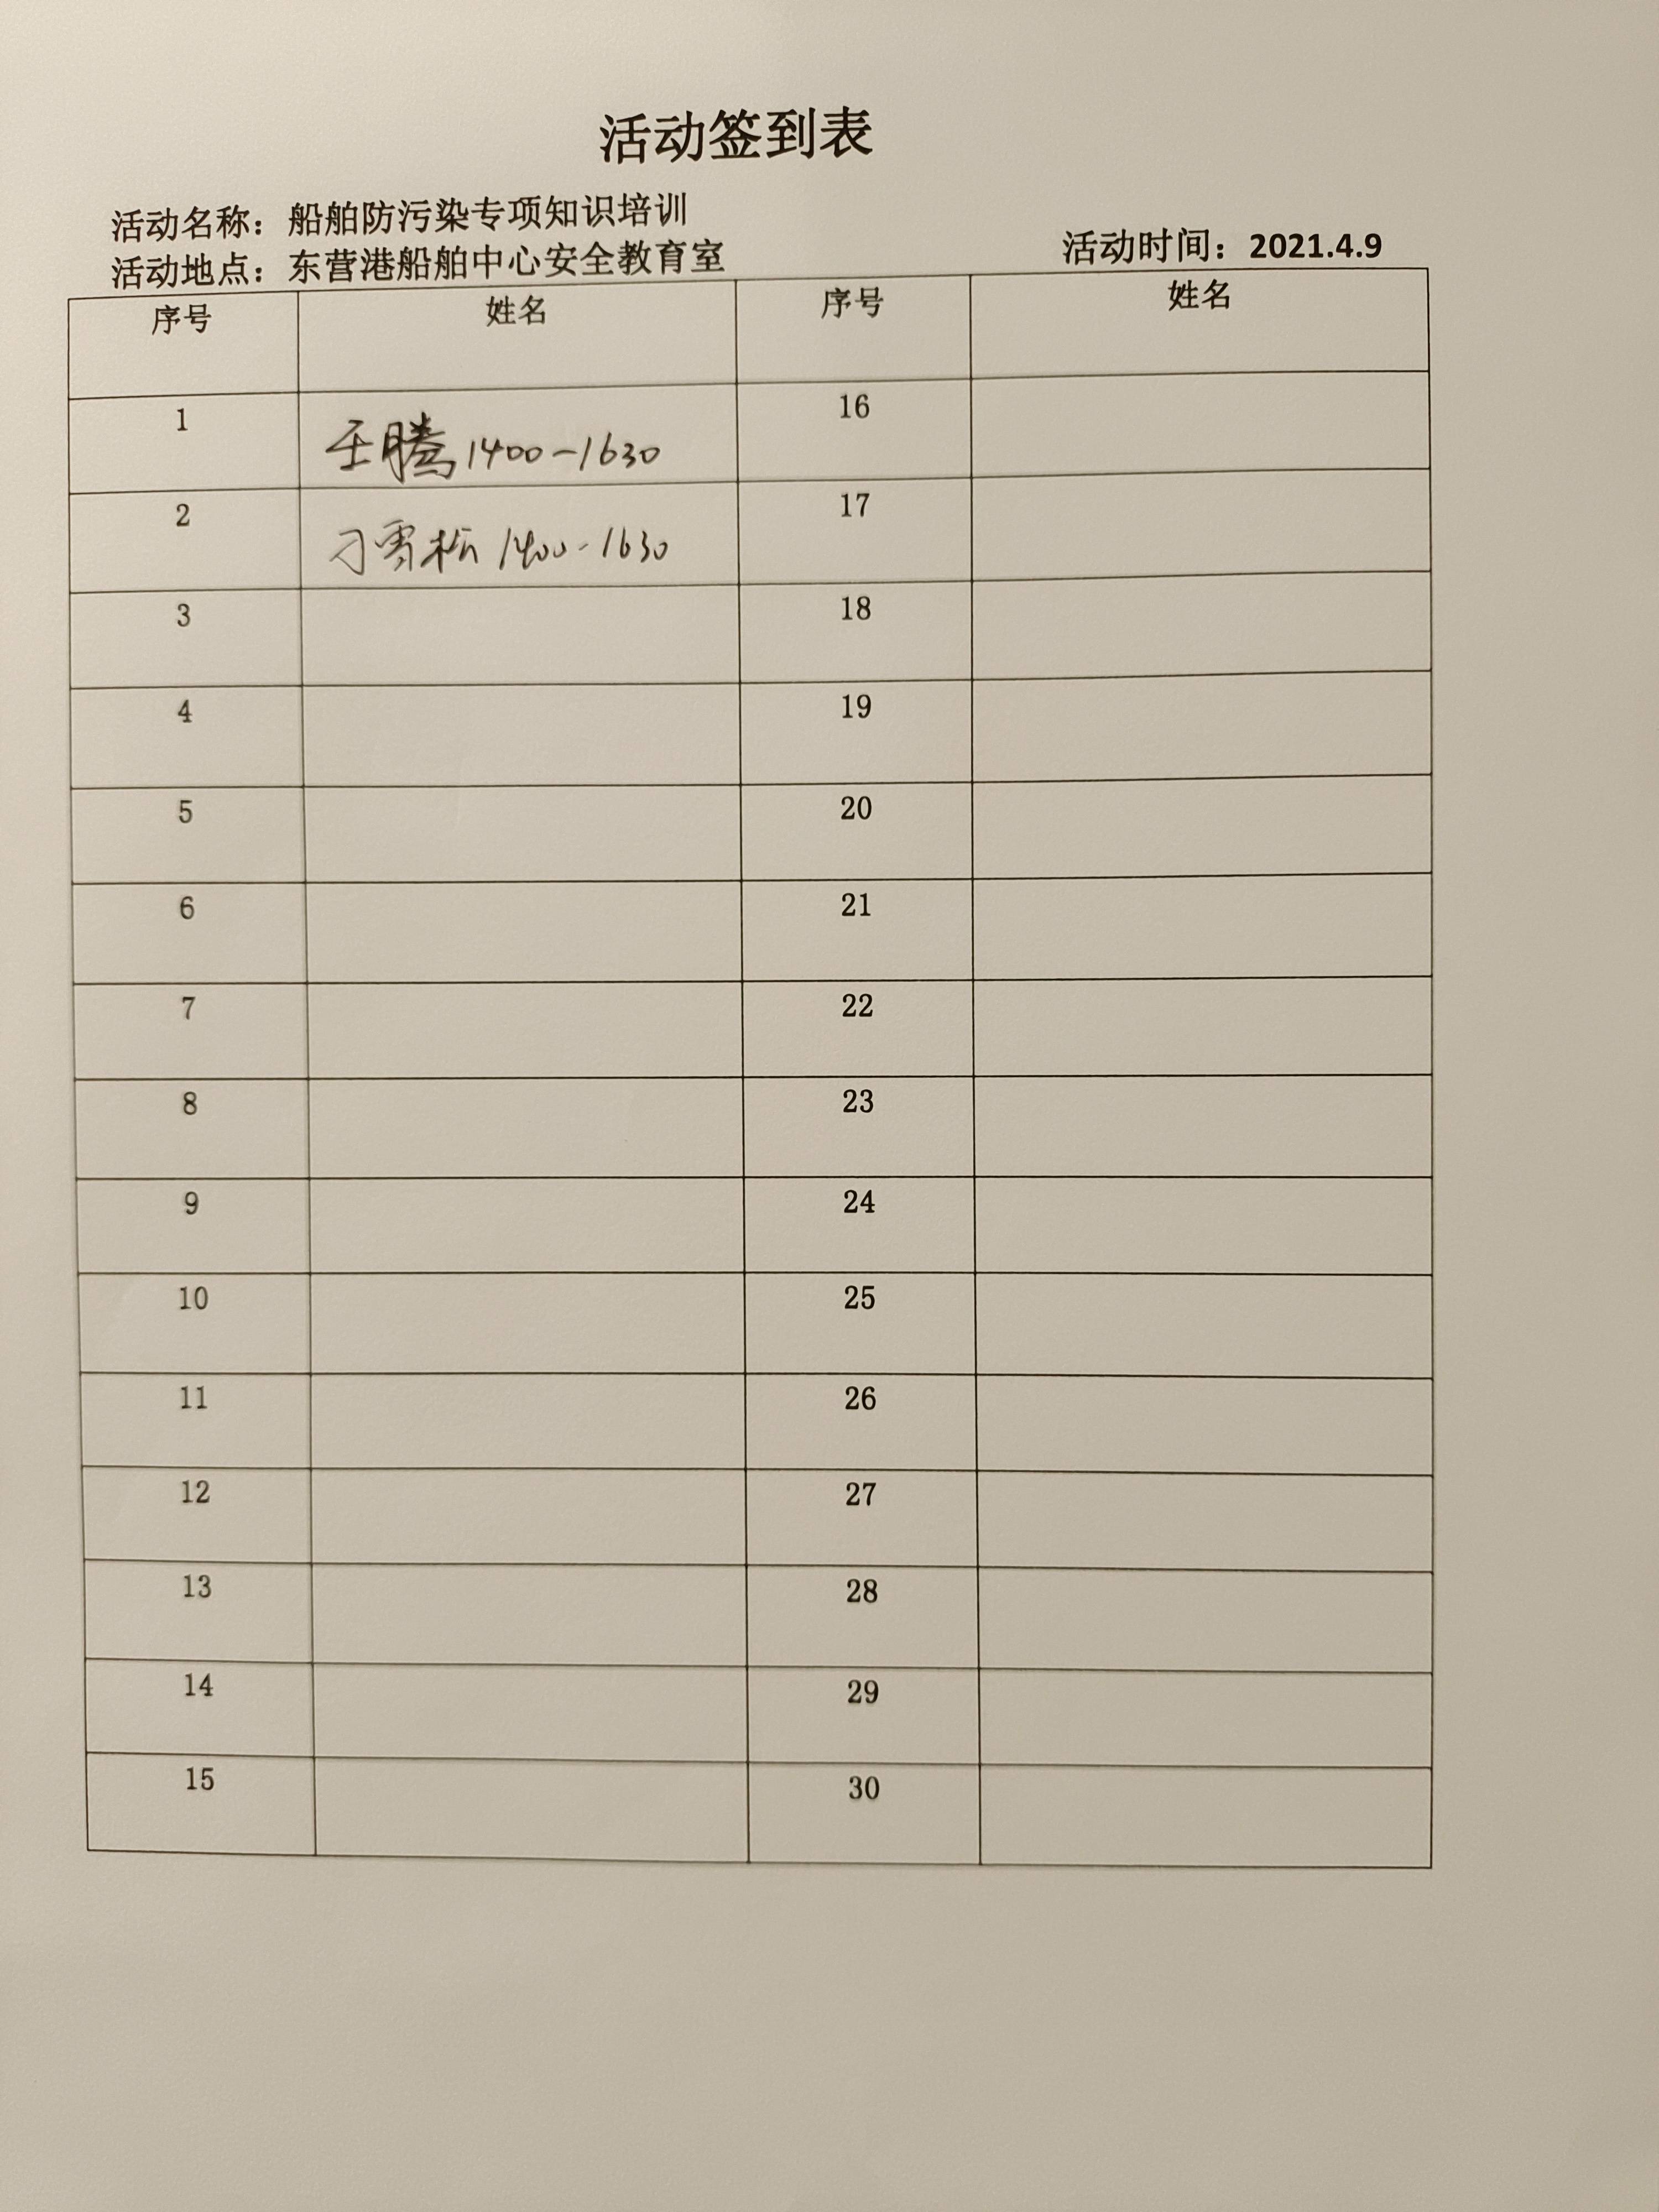 活动签到表
活动名称：船舶防污染专项知识培训
活动地点：东营港船舶中心安全教育室
活动时间：2021.4.9
序号 姓名 序号 姓名
1 王腾 1400-1630 16
2 刁雪松 1400-1630 17
3 18
4 19
5 20
6 21
7 22
8 23
9 24
10 25
11 26
12 27
13 28
14 29
15 30